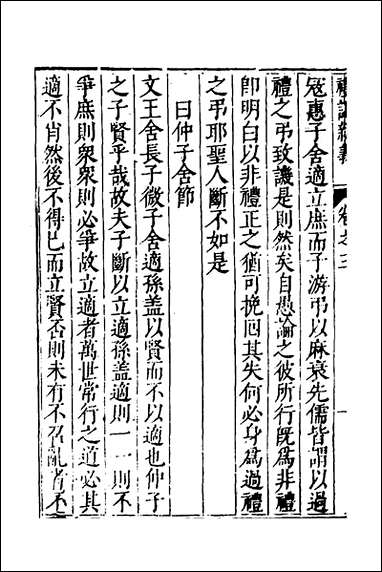 禮記纂義 卷之三 一
冦惠子舍適立庶而子游弔以麻衰先儒皆謂以過
禮之弔致譏是則然矣自愚論之彼所行旣爲非禮
卽明白以非禮正之猶可挽囘其失何必身爲過禮
之弔耶聖人斷不如是
曰仲子舍節
文王舍長子微子舍適孫盖以賢而不以適也仲子
之子賢乎哉故夫子斷以立適孫盖適則一一則不
爭庶則衆衆則必爭故立適者萬世常行之道必其
適不肖然後不得已而立賢否則未有不召亂者不